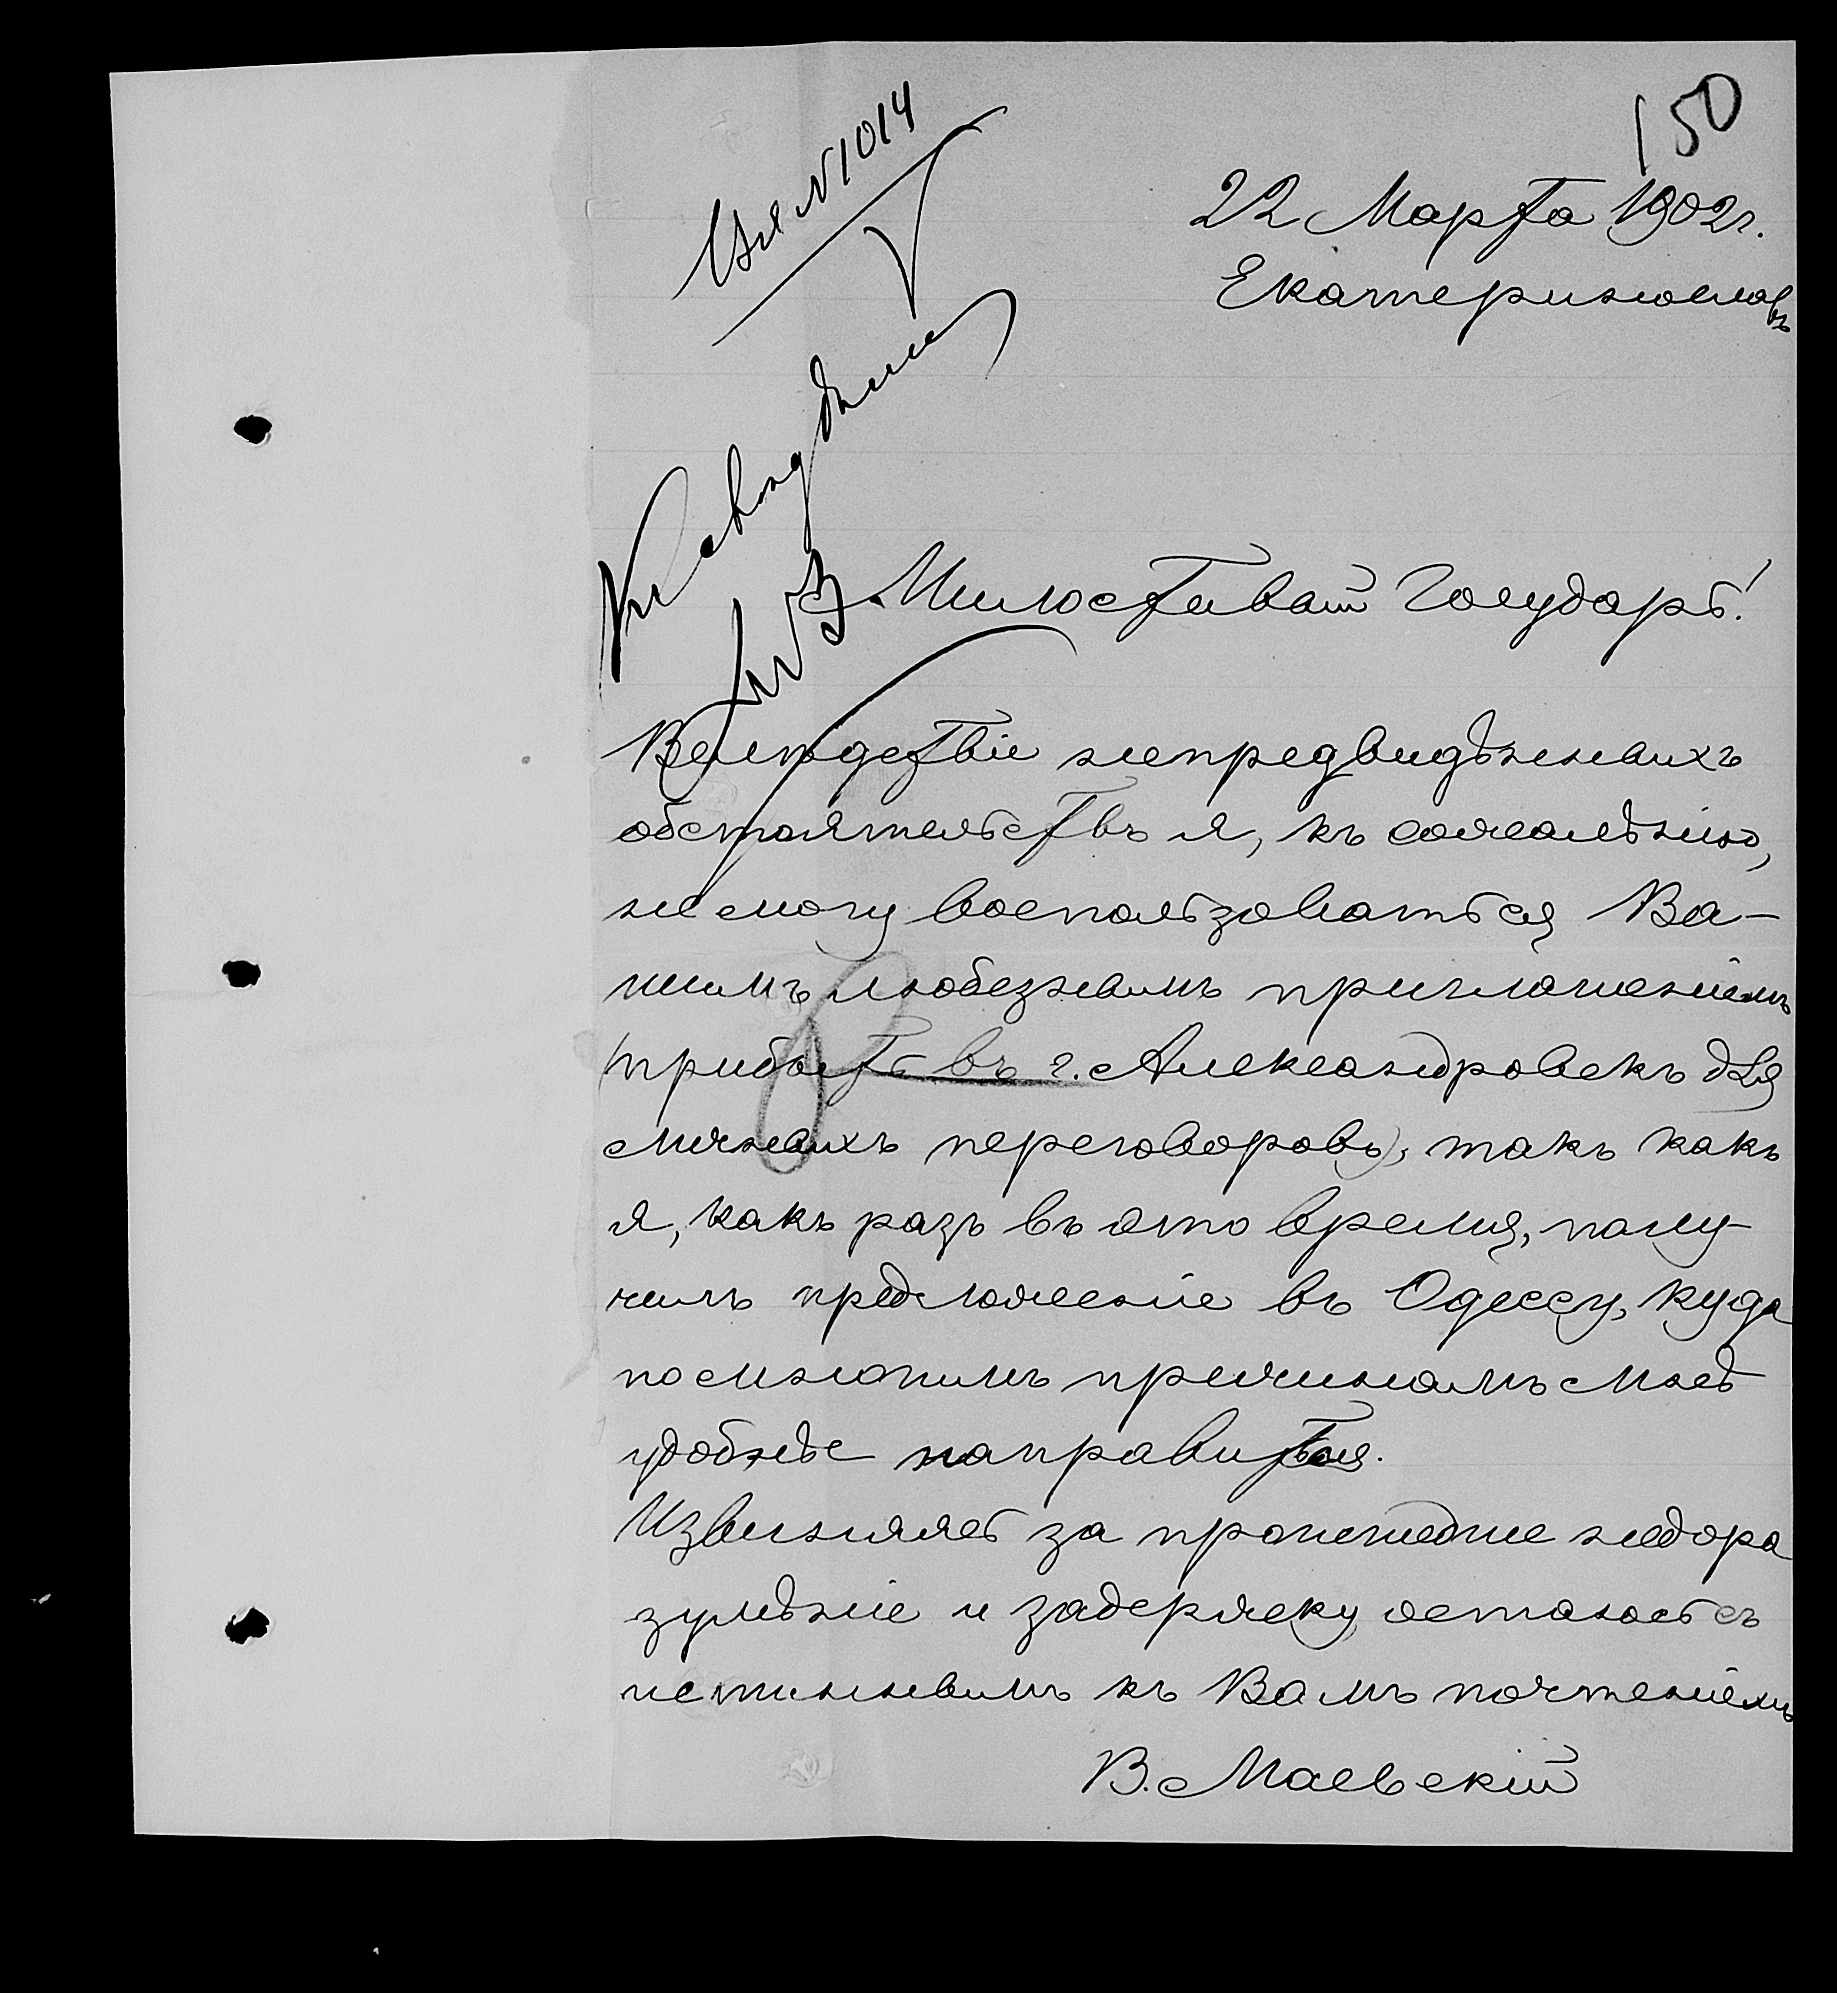 150
№ 1014
22 Марта 1902 г.
Екатеринославъ
Къ свѣдѣнію
Милостивый Государь!
Вслѣдствіе непредвидѣнныхъ
обстоятельствъ я, къ сожалѣнію,
не могу воспользоваться Ва-
шимъ любезнымъ приглашеніемъ
прибыть въ г. Александровскъ для
личныхъ переговоровъ, такъ какъ
я, какъ разъ въ это время, полу-
чилъ предложеніе въ Одессу, куда
по многимъ причинамъ мнѣ
удобнѣе направиться.
Извиняясь за происшедшее недора
зумѣніе и задержку остаюсь съ
истиннымъ къ Вамъ почтеніемъ
В. Маевскій